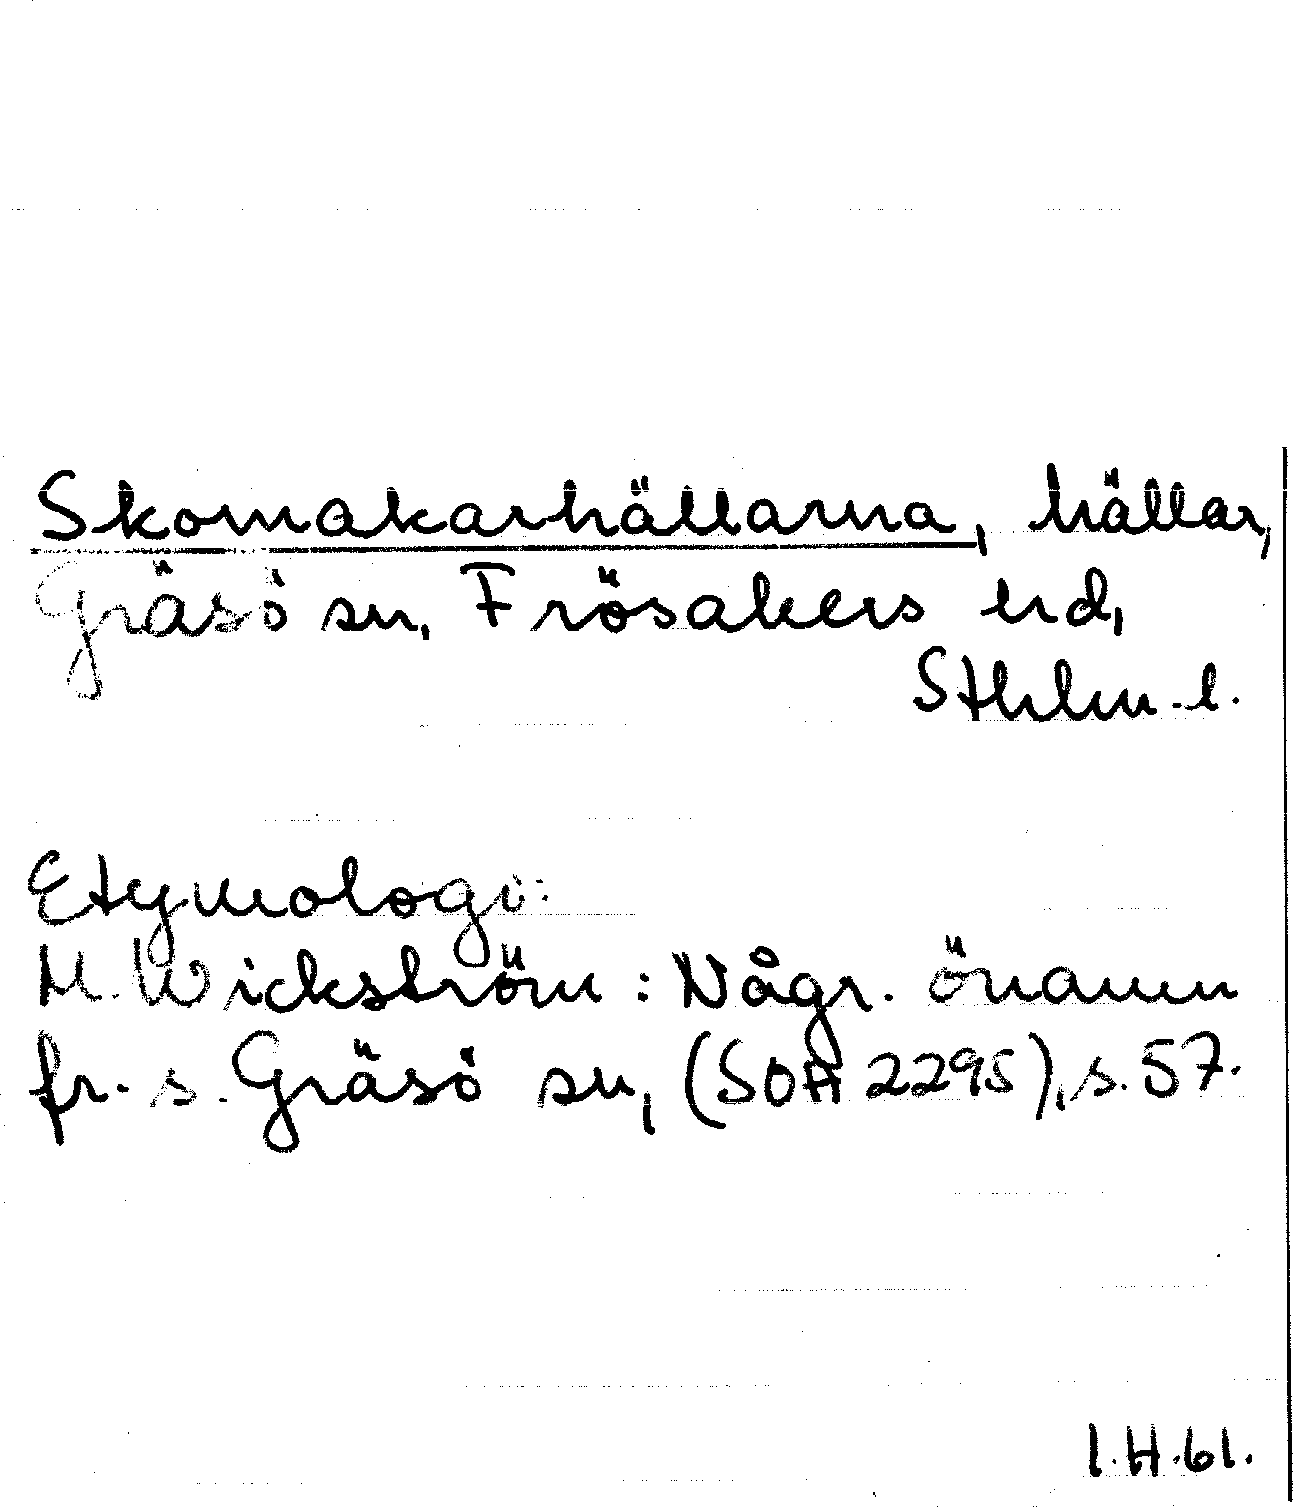 Skomakarhällarna, hällar,
Gräsö sn, Frösåkers hrd,
Sthlm.l.
Etymologi:
M. Wickström: Någr. önamn
fr. s. Gräsö sn, (SOA 2295), s. 57.
I.H.61.